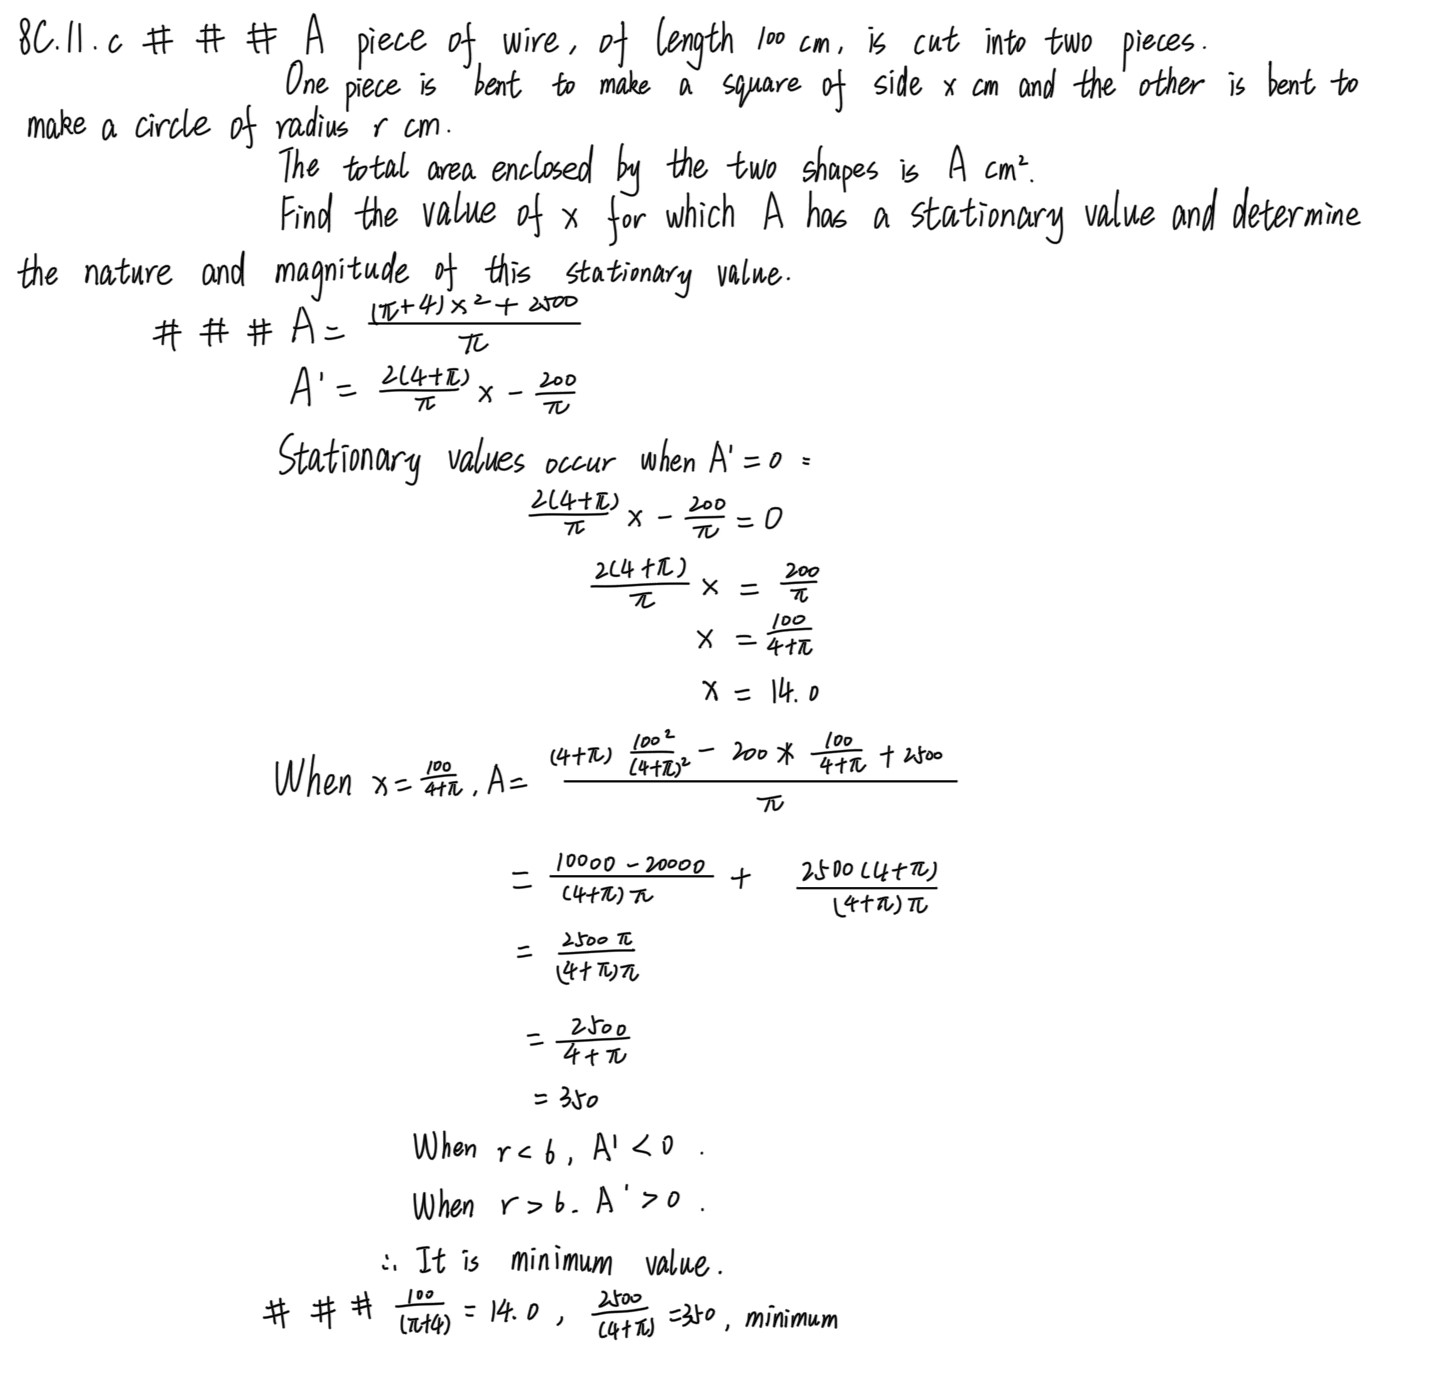 8C.11.c # # # A piece of wire, of length 100 cm, is cut into two pieces.
One piece is bent to make a square of side x cm and the other is bent to
make a circle of radius r cm.
The total area enclosed by the two shapes is A cm².
Find the value of x for which A has a stationary value and determine
the nature and magnitude of this stationary value.
# # # A = \frac{(π+4)x²+2500}{π}
A' = \frac{2(4+π)}{π} x - \frac{200}{π}
Stationary values occur when A' = 0 =
\frac{2(4+π)}{π} x - \frac{200}{π} = 0
\frac{2(4+π)}{π} x = \frac{200}{π}
x = \frac{100}{4+π}
x = 14.0
When x = \frac{100}{4+π}, A = \frac{(4+π) \frac{100²}{(4+π)²} - 200 * \frac{100}{4+π} + 2500}{π}
= \frac{10000-20000}{(4+π)π} + \frac{2500(4+π)}{(4+π)π}
= \frac{2500π}{(4+π)π}
= \frac{2500}{4+π}
= 350
When r < 6, A' < 0 .
When r > 6. A' > 0 .
∴ It is minimum value.
# # # \frac{100}{(π+4)} = 14.0 , \frac{2500}{(4+π)} = 350 , minimum